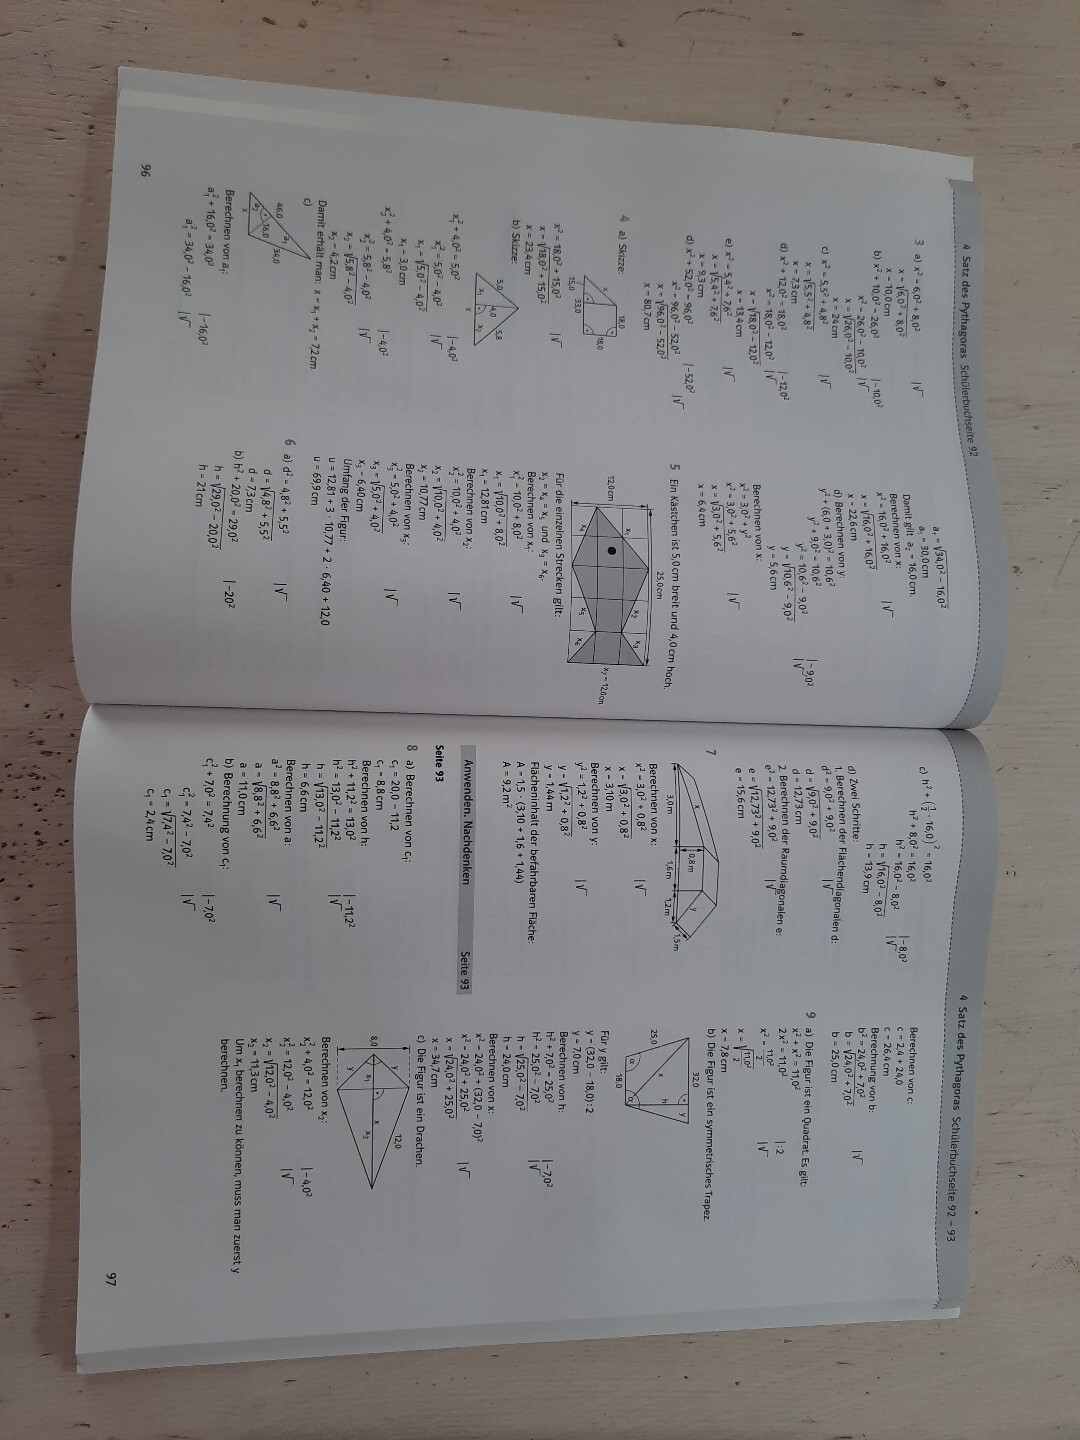 4 Satz des Pythagoras Schülerbuchseite 92
3 a) x² = 6,0² + 8,0² |√
x = √(6,0² + 8,0²)
x = 10,0 cm
b) x² + 10,0² = 26,0² |−10,0²
x² = 26,0² − 10,0² |√
x = √(26,0² − 10,0²)
x = 24 cm
c) x² = 5,5² + 4,8² |√
x = √(5,5² + 4,8²)
x = 7,3 cm
d) x² + 12,0² = 18,0² |−12,0²
x² = 18,0² − 12,0² |√
x = √(18,0² − 12,0²)
x = 13,4 cm
e) x² = 5,4² + 7,6² |√
x = √(5,4² + 7,6²)
x = 9,3 cm
d) x² + 52,0² = 96,0² |−52,0²
x² = 96,0² − 52,0² |√
x = √(96,0² − 52,0²)
x = 80,7 cm
4 a) Skizze:
18,0
x
18,0
15,0
33,0
x² = 18,0² + 15,0² |√
x = √(18,0² + 15,0²)
x = 23,4 cm
b) Skizze:
5,0
4,0
5,8
x₁
x₂
x
x₁² + 4,0² = 5,0² |−4,0²
x₁² = 5,0² − 4,0² |√
x₁ = √(5,0² − 4,0²)
x₁ = 3,0 cm
x₂² + 4,0² = 5,8² |−4,0²
x₂² = 5,8² − 4,0² |√
x₂ = √(5,8² − 4,0²)
x₂ = 4,2 cm
Damit erhält man: x = x₁ + x₂ = 7,2 cm
c)
46,0
a₁
34,0
16,0
a₂
x
Berechnen von a₁:
a₁² + 16,0² = 34,0² |−16,0²
a₁² = 34,0² − 16,0² |√
96
a₁ = √(34,0² − 16,0²)
a₁ = 30,0 cm
Damit gilt a₂ = 16,0 cm.
Berechnen von x:
x² = 16,0² + 16,0² |√
x = √(16,0² + 16,0²)
x = 22,6 cm
d) Berechnen von y:
y² + (6,0 + 3,0)² = 10,6²
y² + 9,0² = 10,6² |−9,0²
y² = 10,6² − 9,0² |√
y = √(10,6² − 9,0²)
y = 5,6 cm
Berechnen von x:
x² = 3,0² + y²
x² = 3,0² + 5,6² |√
x = √(3,0² + 5,6²)
x = 6,4 cm
5 Ein Kästchen ist 5,0 cm breit und 4,0 cm hoch.
25,0 cm
12,0 cm
x₁
x₂
x₃
x₇ = 12,0 cm
x₄
x₅
x₆
Für die einzelnen Strecken gilt:
x₂ = x₄ = x₅ und x₃ = x₆.
Berechnen von x₁:
x₁² = 10,0² + 8,0² |√
x₁ = √(10,0² + 8,0²)
x₁ = 12,81 cm
Berechnen von x₂:
x₂² = 10,0² + 4,0² |√
x₂ = √(10,0² + 4,0²)
x₂ = 10,77 cm
Berechnen von x₃:
x₃² = 5,0² + 4,0² |√
x₃ = √(5,0² + 4,0²)
x₃ = 6,40 cm
Umfang der Figur:
u = 12,81 + 3 · 10,77 + 2 · 6,40 + 12,0
u = 69,9 cm
6 a) d² = 4,8² + 5,5² |√
d = √(4,8² + 5,5²)
d = 7,3 cm
b) h² + 20,0² = 29,0² |−20²
h = √(29,0² − 20,0²)
h = 21 cm
4 Satz des Pythagoras Schülerbuchseite 92 – 93
c) h² + (½ · 16,0)² = 16,0²
h² + 8,0² = 16,0² |−8,0²
h² = 16,0² − 8,0² |√
h = √(16,0² − 8,0²)
h = 13,9 cm
d) Zwei Schritte:
1. Berechnen der Flächendiagonalen d:
d² = 9,0² + 9,0² |√
d = √(9,0² + 9,0²)
d = 12,73 cm
2. Berechnen der Raumdiagonalen e:
e² = 12,73² + 9,0² |√
e = √(12,73² + 9,0²)
e = 15,6 cm
7
x
0,8 m
y
1,5 m
3,0 m
1,6 m
1,2 m
Berechnen von x:
x² = 3,0² + 0,8² |√
x = √(3,0² + 0,8²)
x = 3,10 m
Berechnen von y:
y² = 1,2² + 0,8² |√
y = √(1,2² + 0,8²)
y = 1,44 m
Flächeninhalt der befahrbaren Fläche:
A = 1,5 · (3,10 + 1,6 + 1,44)
A = 9,2 m²
Anwenden. Nachdenken Seite 93
Seite 93
8 a) Berechnen von c₁:
c₁ = 20,0 − 11,2
c₁ = 8,8 cm
Berechnen von h:
h² + 11,2² = 13,0² |−11,2²
h² = 13,0² − 11,2² |√
h = √(13,0² − 11,2²)
h = 6,6 cm
Berechnen von a:
a² = 8,8² + 6,6² |√
a = √(8,8² + 6,6²)
a = 11,0 cm
b) Berechnung von c₁:
c₁² + 7,0² = 7,4² |−7,0²
c₁² = 7,4² − 7,0² |√
c₁ = √(7,4² − 7,0²)
c₁ = 2,4 cm
Berechnen von c:
c = 2,4 + 24,0
c = 26,4 cm
Berechnung von b:
b² = 24,0² + 7,0² |√
b = √(24,0² + 7,0²)
b = 25,0 cm
9 a) Die Figur ist ein Quadrat. Es gilt:
x² + x² = 11,0²
2x² = 11,0² |:2
x² = 11,0²/2 |√
x = √(11,0²/2)
x = 7,8 cm
b) Die Figur ist ein symmetrisches Trapez.
32,0
y
25,0
x
h
α
α
18,0
Für y gilt:
y = (32,0 − 18,0) : 2
y = 7,0 cm
Berechnen von h:
h² + 7,0² = 25,0² |−7,0²
h² = 25,0² − 7,0² |√
h = √(25,0² − 7,0²)
h = 24,0 cm
Berechnen von x:
x² = 24,0² + (32,0 − 7,0)²
x² = 24,0² + 25,0² |√
x = √(24,0² + 25,0²)
x = 34,7 cm
c) Die Figur ist ein Drachen.
12,0
y
x
8,0
x₁
x₂
y
Berechnen von x₂:
x₂² + 4,0² = 12,0² |−4,0²
x₂² = 12,0² − 4,0² |√
x₂ = √(12,0² − 4,0²)
x₂ = 11,3 cm
Um x₁ berechnen zu können, muss man zuerst y
berechnen.
97